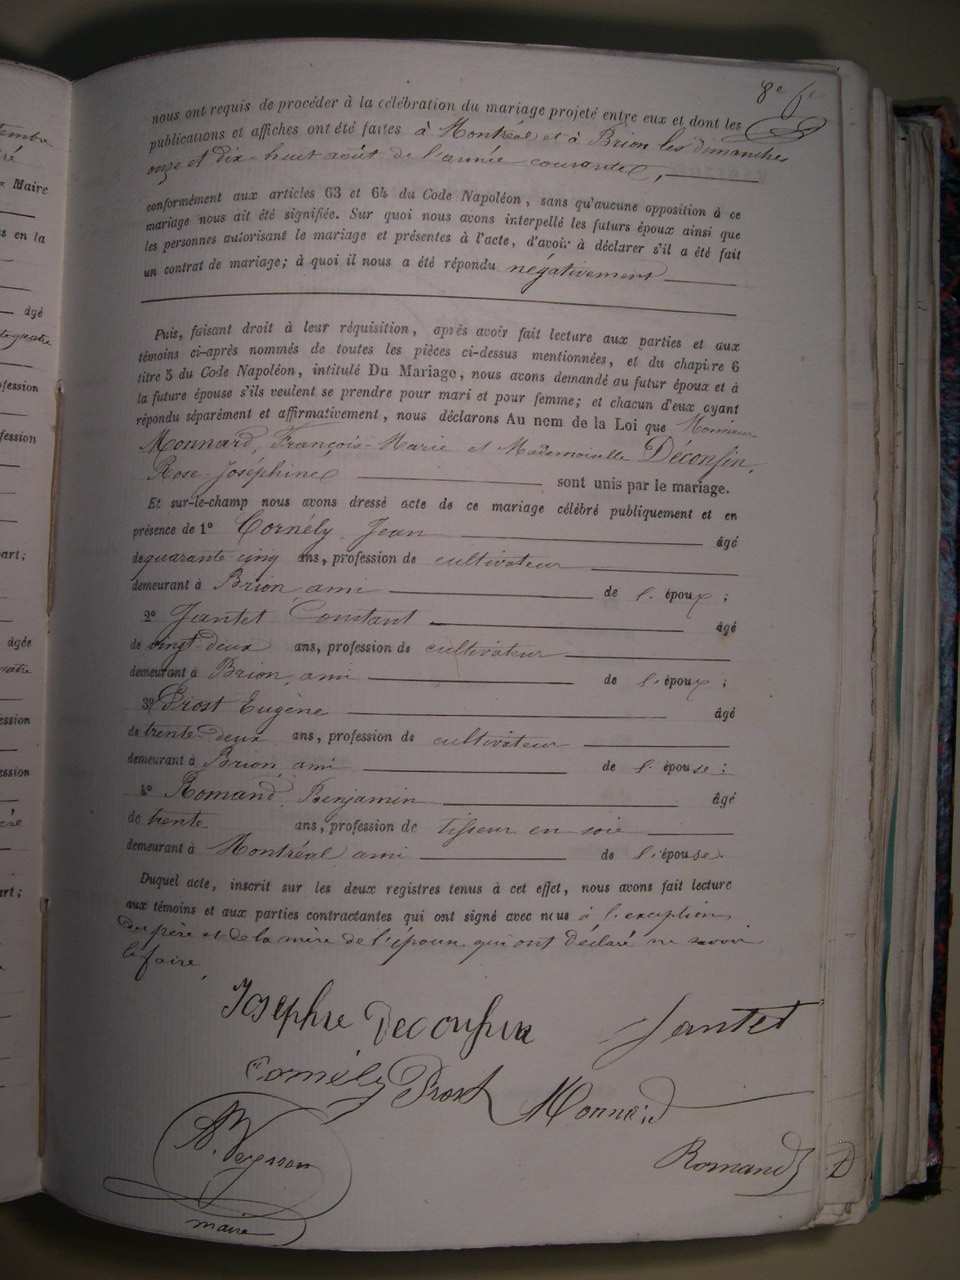 8e
nous ont requis de procéder à la célébration du mariage projeté entre eux et dont les
publications et affiches ont été faites à Montréal et à Brion les dimanches
onze et dix-huit août de l'année courante,
conformément aux articles 63 et 64 du Code Napoléon, sans qu'aucune opposition à ce
mariage nous ait été signifiée. Sur quoi nous avons interpellé les futurs époux ainsi que
les personnes autorisant le mariage et présentes à l'acte, d'avoir à déclarer s'il a été fait
un contrat de mariage; à quoi il nous a été répondu négativement
Puis, faisant droit à leur réquisition, après avoir fait lecture aux parties et aux
témoins ci-après nommés de toutes les pièces ci-dessus mentionnées, et du chapitre 6
titre 5 du Code Napoléon, intitulé Du Mariage, nous avons demandé au futur époux et à
la future épouse s'ils veulent se prendre pour mari et pour femme; et chacun d'eux ayant
répondu séparément et affirmativement, nous déclarons Au nom de la Loi que Monsieur
Monnard, François-Marie et Mademoiselle Déconfin,
Rose-Joséphine sont unis par le mariage.
Et sur-le-champ nous avons dressé acte de ce mariage célébré publiquement et en
présence de 1º Cornély Jean âgé
de quarante cinq ans, profession de cultivateur
demeurant à Brion ami de l'époux;
2º Jantet Constant âgé
de vingt-deux ans, profession de cultivateur
demeurant à Brion, ami de l'époux;
3º Prost Eugène âgé
de trente-deux ans, profession de cultivateur
demeurant à Brion, ami de l'épouse;
4º Romand Benjamin âgé
de trente ans, profession de tisseur en soie
demeurant à Montréal ami de l'épouse.
Duquel acte, inscrit sur les deux registres tenus à cet effet, nous avons fait lecture
aux témoins et aux parties contractantes qui ont signé avec nous à l'exception
du père et de la mère de l'époux qui ont déclaré ne savoir
le faire.
Josephie Deconfin Jantet
Cornély Prost Monnard
Romand
maire
Maire
s en la
âgé
fession
fession
part;
âgée
ession
ession
rt;